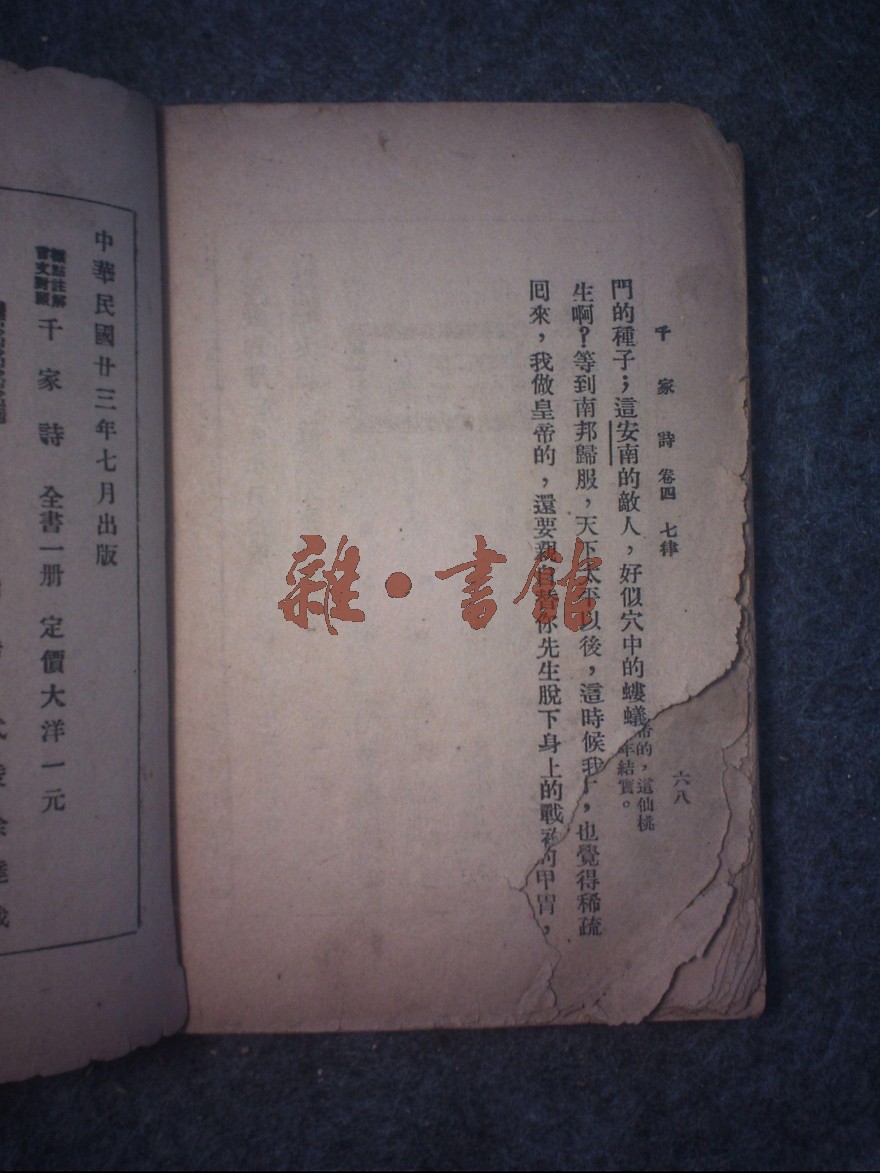 千家詩 卷四 七律 六八
門的種子；這安南的敵人，好似穴中的螻蟻
帝的，這仙桃
年結實。
生啊？等到南邦歸服，天下太平以後，這時候我
，也覺得稀疏
囘來，我做皇帝的，還要親自替你先生脫下身上的戰
的甲冑，
雜·書館
中華民國廿三年七月出版
標點註解
言文對照
千家詩 全書一册 定價大洋一元